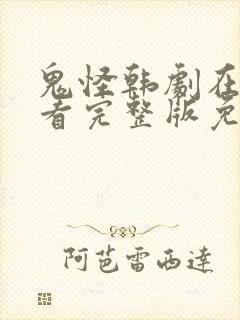 鬼怪韩劇在
看完整版免
阿芭雷西達